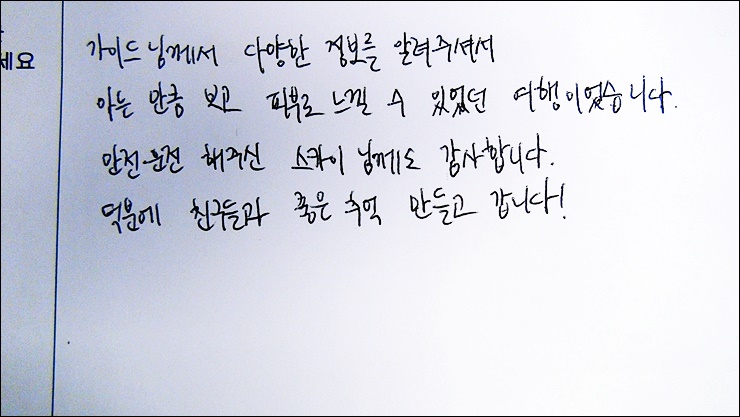 세요
가이드님께서 다양한 정보를 알려주셔서
아는 만큼 보고 피부로 느낄 수 있었던 여행이었습니다.
안전운전 해주신 스카이님께도 감사합니다.
덕분에 친구들과 좋은 추억 만들고 갑니다!